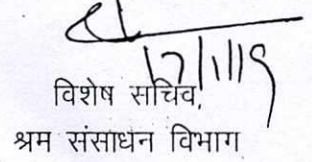 17/1/19
विशेष सचिव,
श्रम संसाधन विभाग